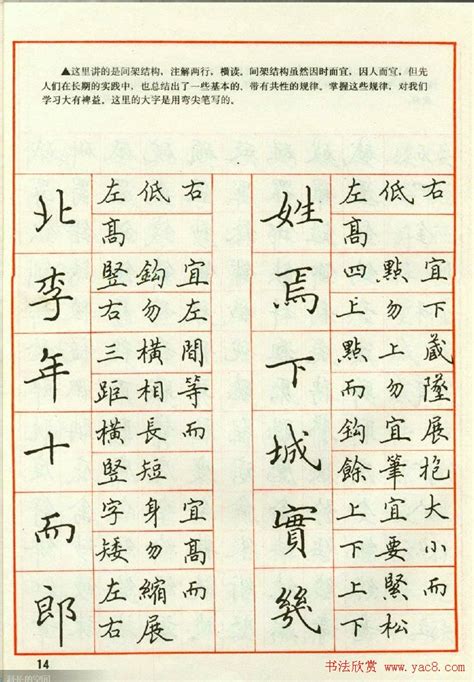 ▲这里讲的是间架结构，注解两行，横读，间架结构虽然因时而宜，因人而宜，但先
人们在长期的实践中，也总结出了一些基本的，带有共性的规律。掌握这些规律，对我们
学习大有裨益。这里的大字是用弯尖笔写的。
北
左低右
高
李
竪鈎宜
右勿左
年
三橫間
距相等
十
橫長而
竪短
而
字身宜
矮勿高
郎
左縮而
右展
姓
左低右
高
焉
四點宜
上勿下
下
點上藏
而勿墜
城
鈎宜展
餘筆抱
實
上宜大
下要小
幾
上緊而
下松
14
书法欣赏
www.yac8.com